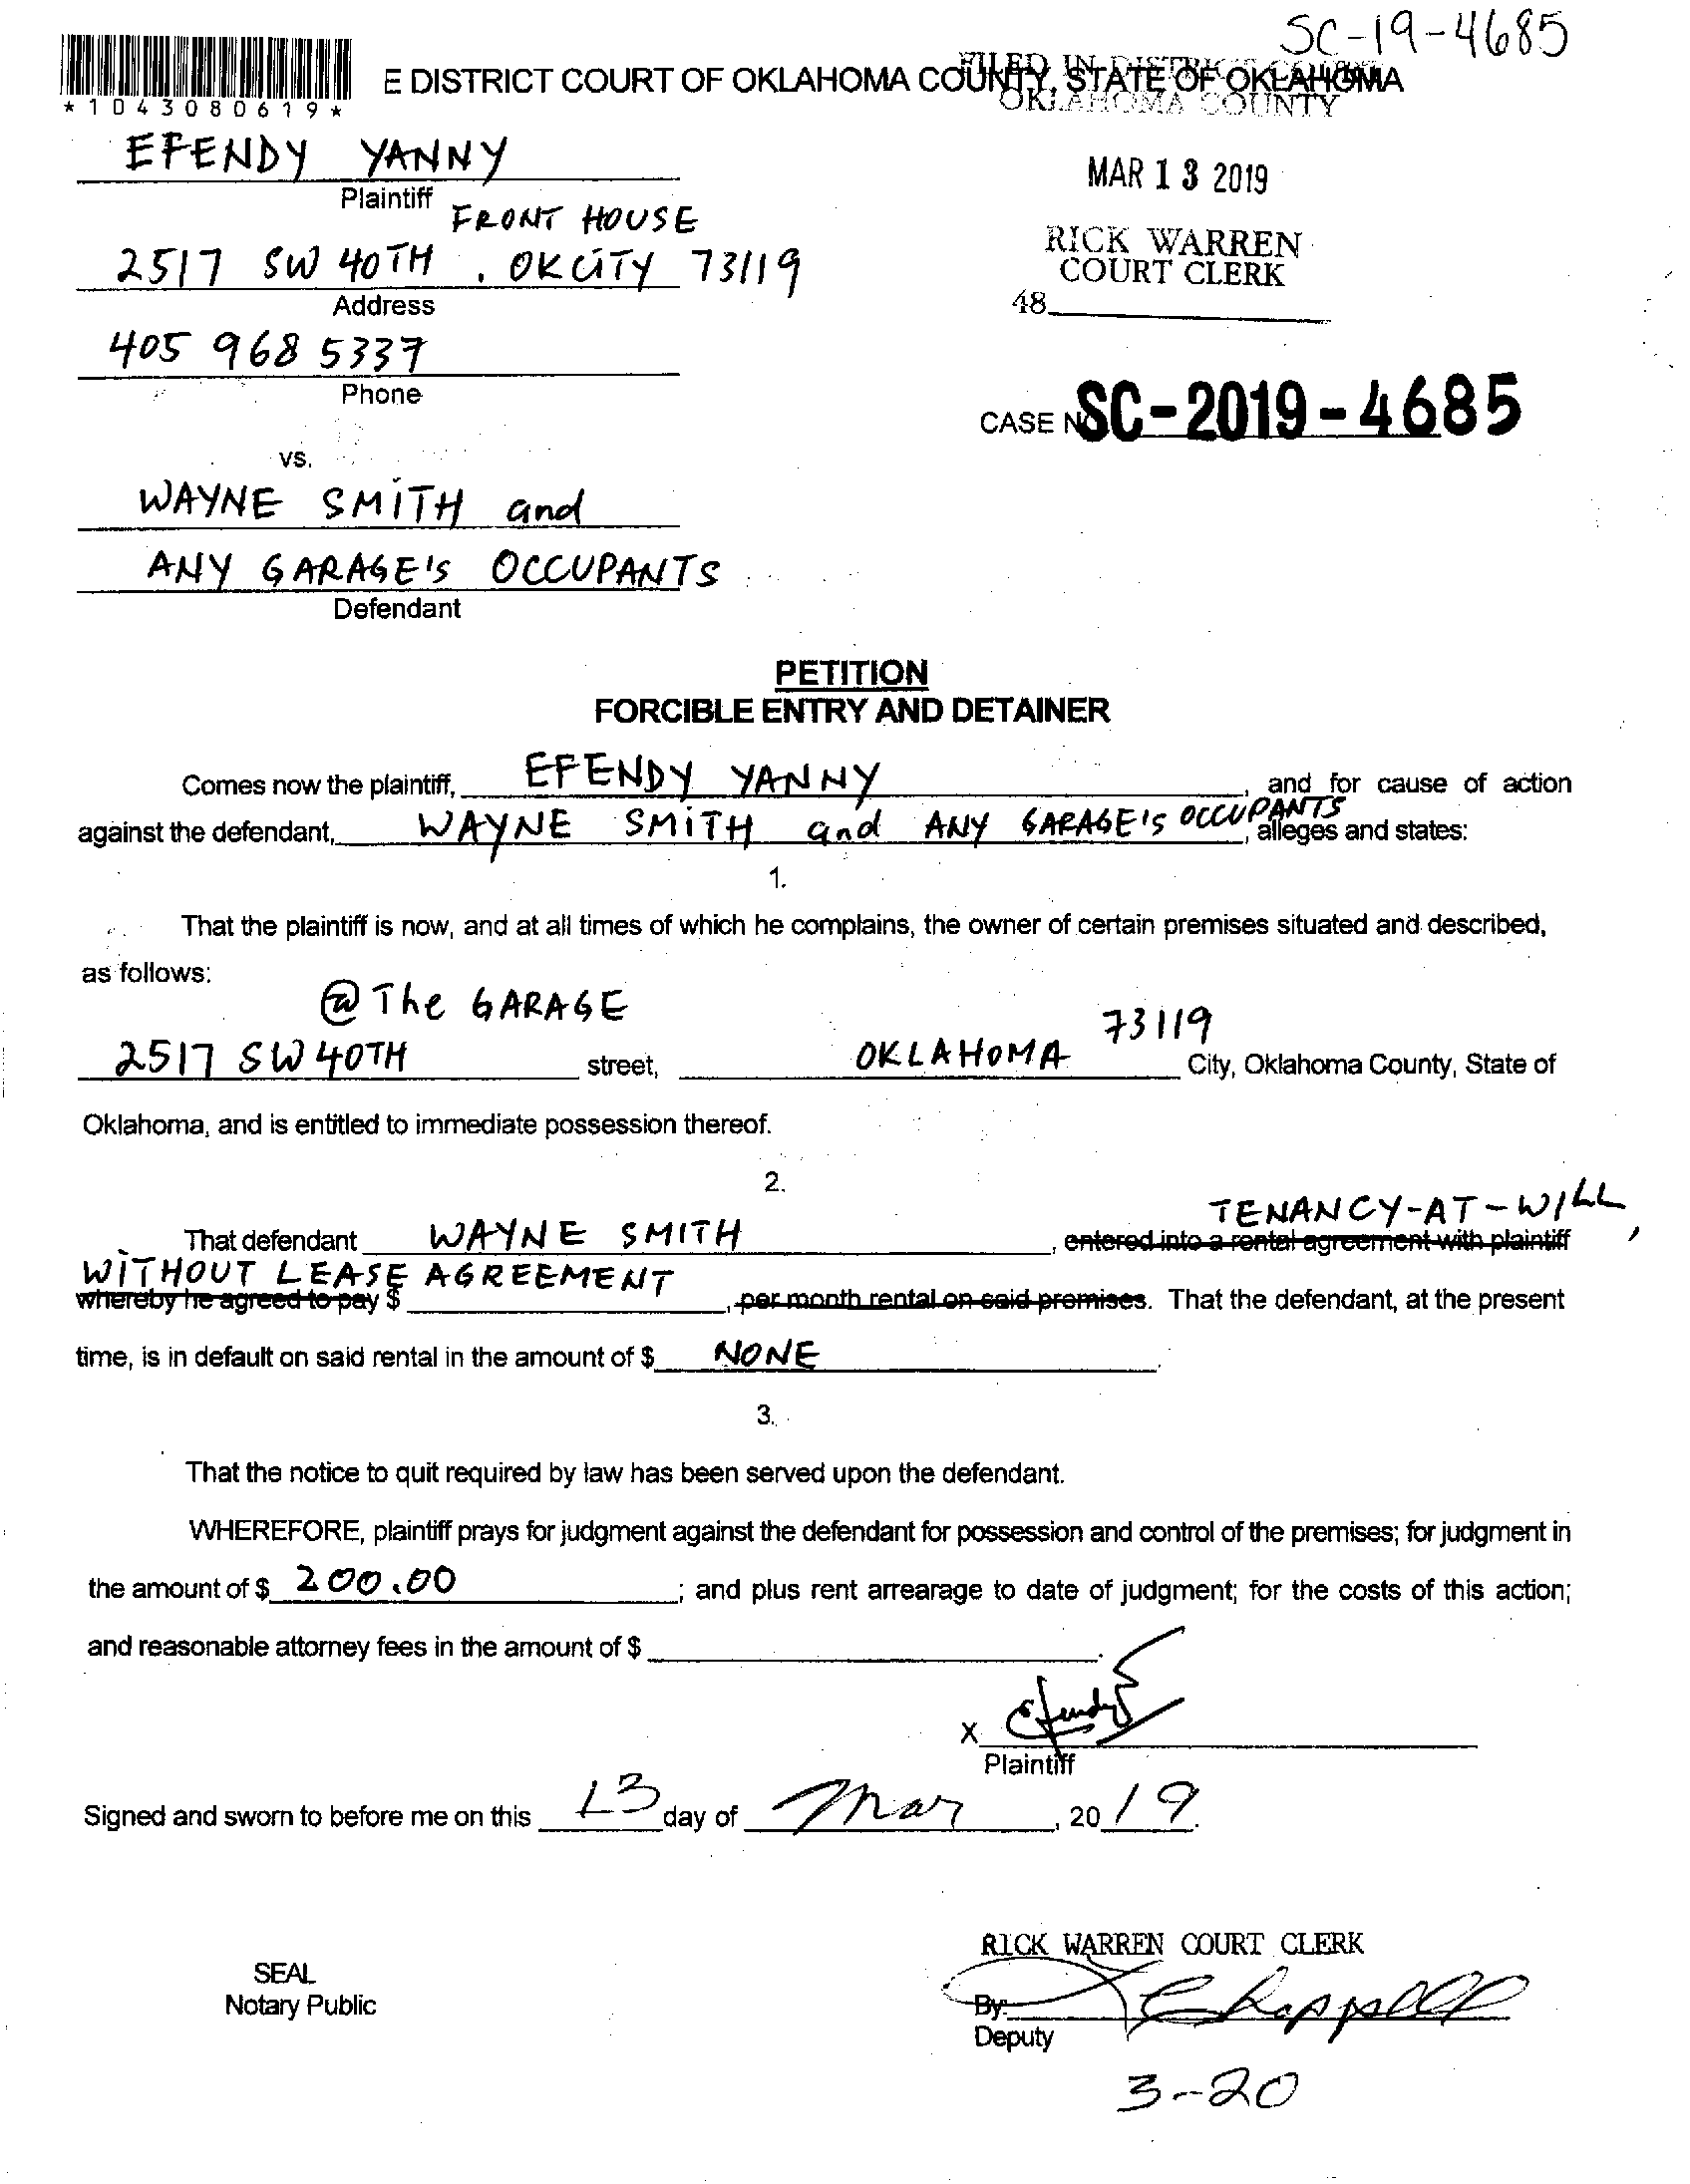 SC-19-4685
E DISTRICT COURT OF OKLAHOMA COUNTY, STATE OF OKLAHOMA
FILED IN DISTRICT COURT
OKLAHOMA COUNTY
*1043080619*
EFENDY YANNY
Plaintiff
MAR 13 2019
FRONT HOUSE
2517 SW 40TH . OKCITY 73119
Address
RICK WARREN
COURT CLERK
48
405 968 5337
Phone
CASE NO SC-2019-4685
vs.
WAYNE SMITH and
ANY GARAGE'S OCCUPANTS
Defendant
PETITION
FORCIBLE ENTRY AND DETAINER
Comes now the plaintiff, EFENDY YANNY, and for cause of action
against the defendant, WAYNE SMITH and ANY GARAGE'S OCCUPANTS, alleges and states:
1.
That the plaintiff is now, and at all times of which he complains, the owner of certain premises situated and described,
as follows:
@ The GARAGE
2517 SW 40TH street, OKLAHOMA 73119 City, Oklahoma County, State of
Oklahoma, and is entitled to immediate possession thereof.
2.
TENANCY-AT-WILL,
That defendant WAYNE SMITH, entered into a rental agreement with plaintiff
WITHOUT LEASE AGREEMENT
whereby he agreed to pay $, per month rental on said premises. That the defendant, at the present
time, is in default on said rental in the amount of $ NONE.
3.
That the notice to quit required by law has been served upon the defendant.
WHEREFORE, plaintiff prays for judgment against the defendant for possession and control of the premises; for judgment in
the amount of $ 200.00; and plus rent arrearage to date of judgment; for the costs of this action;
and reasonable attorney fees in the amount of $.
X Efendy
Plaintiff
Signed and sworn to before me on this 13 day of Mar, 20 19.
RICK WARREN COURT CLERK
SEAL
Notary Public
By: Chappell
Deputy
3-20